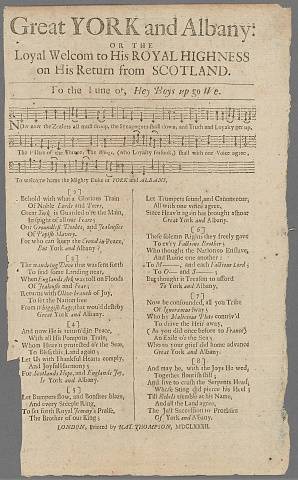 Great YORK and Albany:
OR THE
Loyal Welcom to His ROYAL HIGHNESS
on His Return from SCOTLAND.
To the Tune of, Hey Boys up go We.
Now the Zealots all must droop, the down, and Truth and Loyalty get up,
The of the Nation, The Whigs, who Loyalty shall with one Voice agree,
To welcome home the Mighty Duke of YORK and ALBANY,
[2]
Behold with what a Glorious Train
Of Noble Lords and Peers,
Great York is Guarded o're the Main,
In spight of all our Fears;
Our Groundless Doubts, and Jealousies
Of Popish Slavery,
For who can hope the Crowd in Peace,
But York and Albany?
[3]
The wandring Dove that was sent forth
To find some Landing near,
When England's Ark was tost on Floods
Of Jealousie and Fear;
Returns with Olive-branch of Joy,
To set the Nation free
From Whiggish Rage, that would destroy
Great York and Albany.
[4]
And now He is return'd in Peace,
With all His Pompous Train,
Whom Heav'n protected o're the Seas,
To Bless this Land again;
Let Us with Thankful Hearts comply,
And Joyful Harmony;
For Scotlands Hope, and Englands Joy,
Is York and Albany.
[5]
Let Bumpers flow, and Bonfires blaze,
And every Steeple Ring,
To set forth Royal Jemmy's Praise,
The Brother of our King;
Let Trumpets sound, and Cannons roar,
All with one voice agree,
Since Heav'n again has brought a shoar
Great York and Albany.
[6]
Those solemn Rights they freely gave
To ev'ry Factious Brother;
Who thought the Nation to Enslave,
And Ruine one another:
To M—, and each Factious Lord;
To O— and S—;
But thought it Treason to afford
To York and Albany.
[7]
Now be confounded, all you Tribe
Of Ignoramus Swing;
Who by Malicious Plots contriv'd
To drive the Heir away,
(As you did once before to France)
An Exile o're the Sea;
Who to your grief did home advance
Great York and Albany:
[8]
And may he, with the Joys He wed,
Together flourish still;
And live to crush the Serpents Head,
Whose Sting did pierce his Heel:
Till Rebels tremble at his Name,
And all the Land agree,
The Just Succession to Proclaim
Of York and Albany.
LONDON, Printed by NAT. THOMPSON, MDCLXXXII.